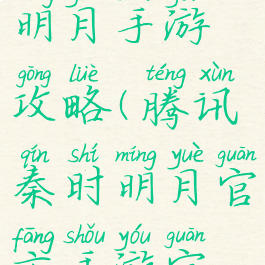 明月手游
gōng lüè téng xùn
攻略(腾讯
qín shí míng yuè guān
秦时明月官
fāng shǒu yóu guān